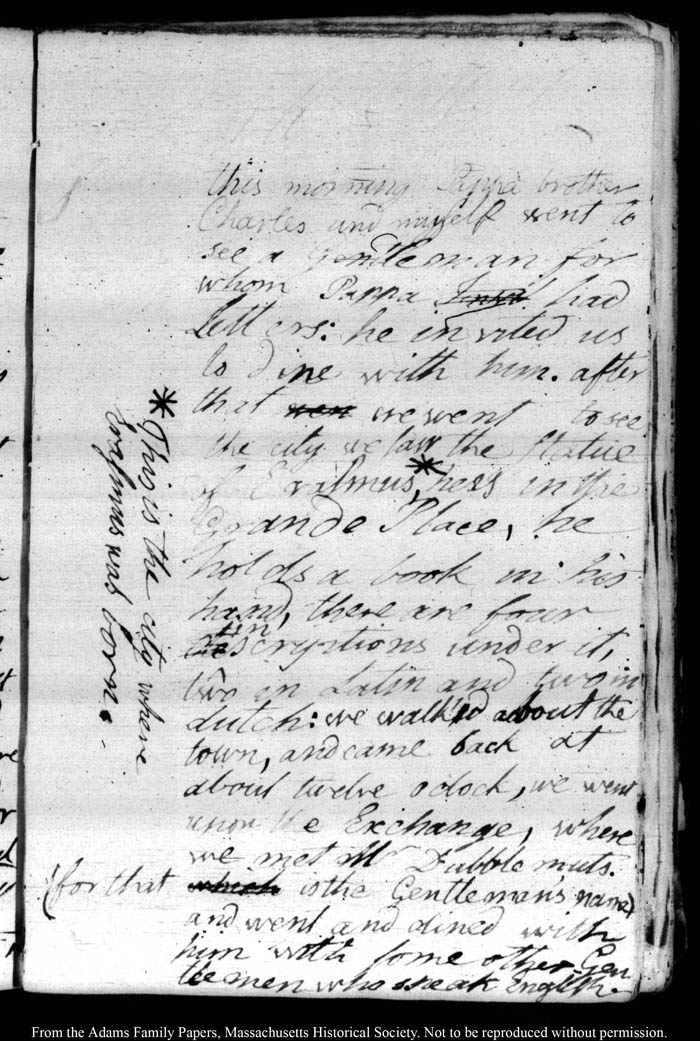 this morning Pappa brother
Charles and myself went to
see a Gentleman for
whom Pappa had
Letters: he invited us
to dine with him. after
that wen we went to see
the city we saw the Statue
of Erasmus,* hess in the
Grande Place, he
holds a book in his
hand, there are four
inscryptions under it,
two in Latin and two in
dutch: we walk'd about the
town, and came back at
about twelve oclock, we went
upon the Exchange, where
we met Mr Dubblemuts.
(for that which is the Gentlemans name)
and went and dined with
him with some other Gen
tlemen who speak English.
*This is the city where
Erasmus was born.
From the Adams Family Papers, Massachusetts Historical Society. Not to be reproduced without permission.